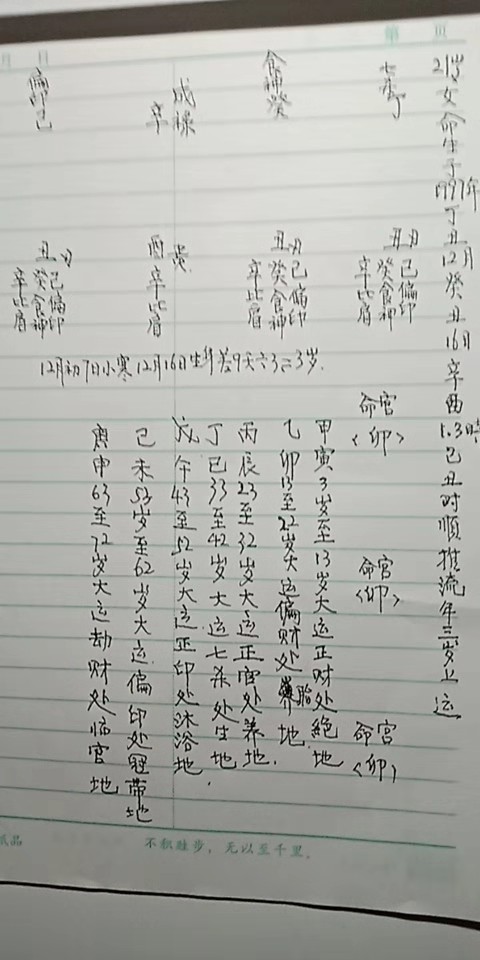 第 页
月 日
21岁女命生于1997年丁丑12月癸丑16日辛酉1.3時己丑时順推流年三岁上运
七杀丁
食神癸
戌禄
辛
偏印己
丑月
己偏印
癸食神
辛比肩
丑月
己偏印
癸食神
辛比肩
酉
辛比肩
丑月
己偏印
癸食神
辛比肩
12月初7日小寒12月16日生年差9天六3=3岁.
命宫
<卯>
命宫
<卯>
命宫
<卯>
甲寅3岁至13岁大运正财处絕地
乙卯13至22岁大运偏财处胎地.
丙辰23至32岁大运正官处养地.
丁巳33至42岁大运七杀处生地.
戊午43至52岁大运正印处沐浴地
己未53岁至62岁大运偏印处冠带地
庚申63至72岁大运劫财处临官地
纸品
不积跬步，无以至千里。